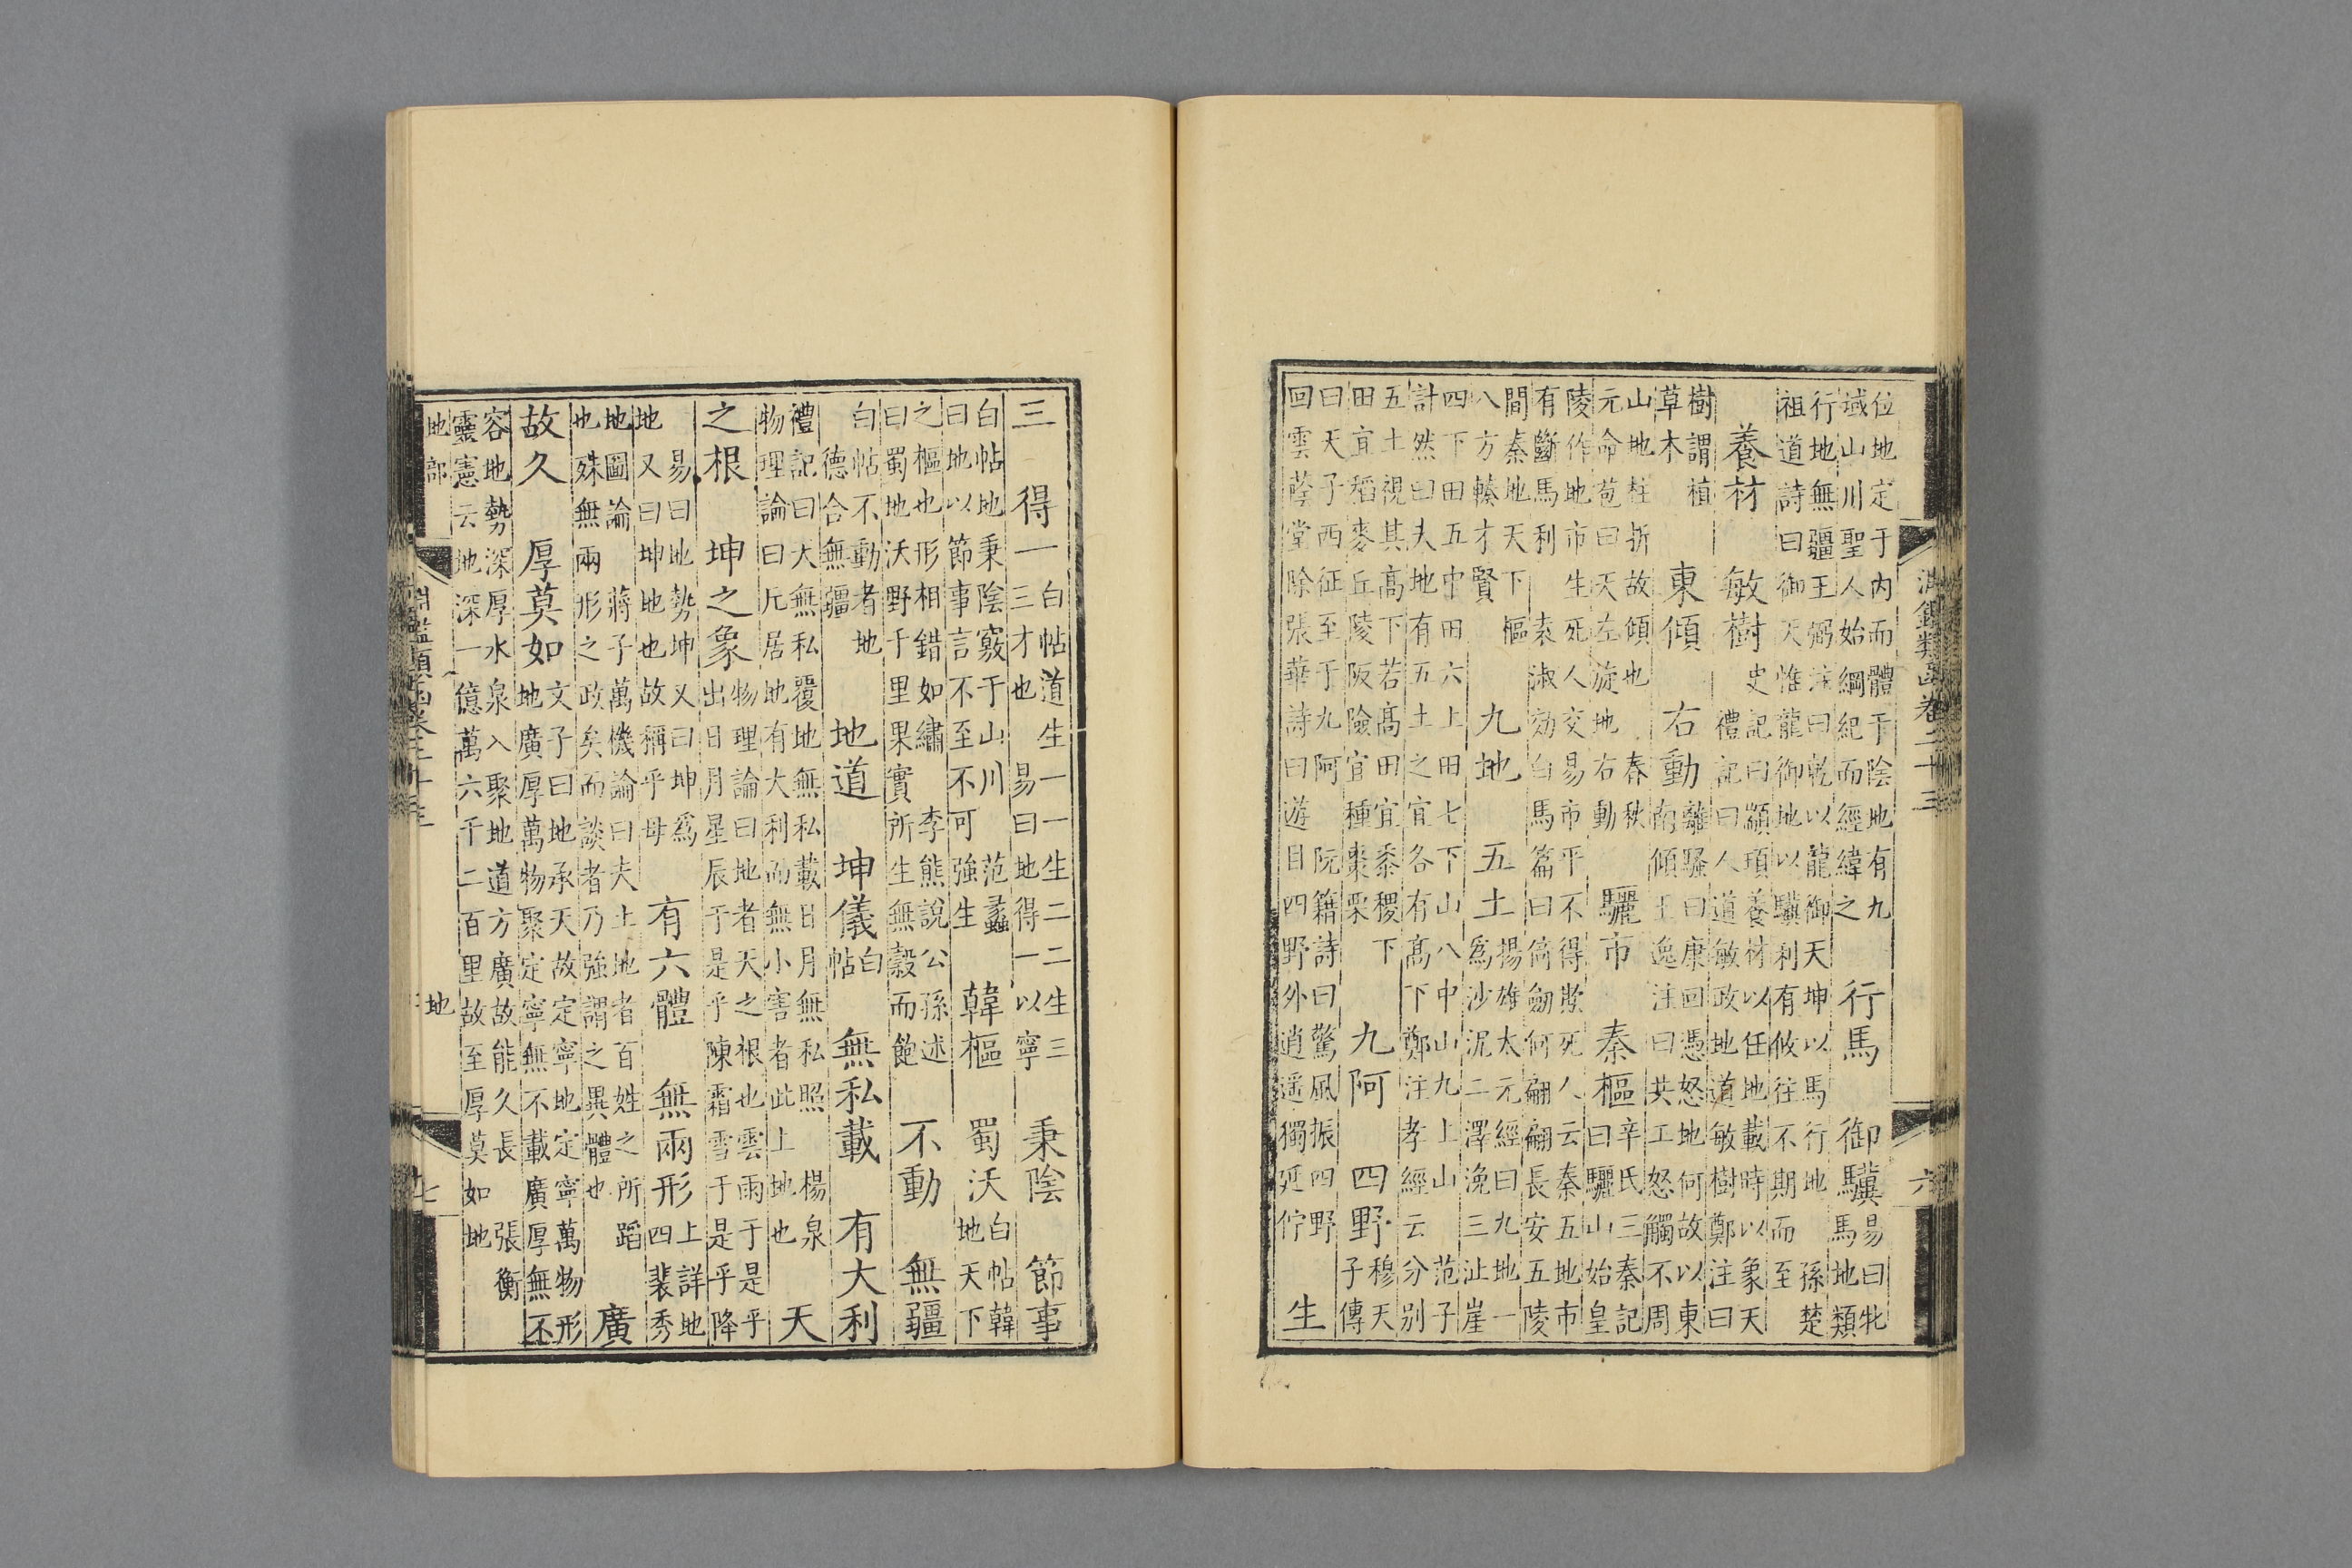 淵鑑類函卷二十三
六
位地定于内而體于陰地有九
域山川聖人始綱紀而經緯之
行馬 御驥
易曰牝
馬地類
行地無疆王弼注曰乾以龍御天坤以馬行地 孫楚
祖道詩曰御天惟龍御地以驥利有攸往不期而至
養材 敏樹
史記曰顓頊養材以任地載時以象天
禮記曰人道敏政地道敏樹鄭注曰
樹謂植
草木
東傾 右動
離騷曰康回憑怒地何故以東
南傾王逸注曰共工怒觸不周
山地柱折故傾也 春秋
元命苞曰天左旋地右動
驪市 秦樞
辛氏三秦記
曰驪山始皇
陵作地市生死人交易市平不得欺死人云秦五地市
有斷馬利 袁淑効白馬篇曰劒何翩翩長安五陵
間秦地天下樞
八方輳才賢
九地 五土
揚雄太元經曰九地一
爲沙泥二澤浼三沚崖
四下田五中田六上田七下山八中山九上山 范子
計然曰夫地有五土之宜各有高下鄭注孝經云分别
五土視其高下若高田宜黍稷下
田宜稻麥丘陵阪險宜種棗栗
九阿 四野
穆天
子傳
曰天子西征至于九阿 阮籍詩曰驚風振四野
回雲蔭堂除張華詩曰遊目四野外逍遥獨延佇
生
三 得一
白帖道生一一生二二生三
三才也 易曰地得一以寧
秉陰 節事
白帖地秉陰竅于山川 范蠡
曰地以節事言不至不可強生
韓樞 蜀沃
白帖韓
地天下
之樞也形相錯如繡 李熊說公孫述
曰蜀地沃野千里果實所生無穀而飽
不動 無疆
白帖不動者地
德合無疆
地道 坤儀
白
帖
無私載 有大利
禮記曰大無私覆地無私載日月無私照 楊泉
物理論曰凥居地有大利而無小害者此上地也
天
之根 坤之象
物理論曰地者天之根也雲雨于是乎
出日月星辰于是乎陳霜雪于是乎降
易曰地勢坤又曰坤爲
地又曰坤地也故稱乎母
有六體 無兩形
上詳地
四裴秀
地圖論 蔣子萬機論曰夫土地者百姓之所蹈
也殊無兩形之政矣而談者乃強謂之異體也
廣
故久 厚莫如
文子曰地承天故定寧地定寧萬物形
地廣厚萬物聚定寧無不載廣厚無不
容地勢深厚水泉入聚地道方廣故能久長 張衡
靈憲云地深一億萬六千二百里故至厚莫如地
地部
淵鑑類函卷二十三
地
七